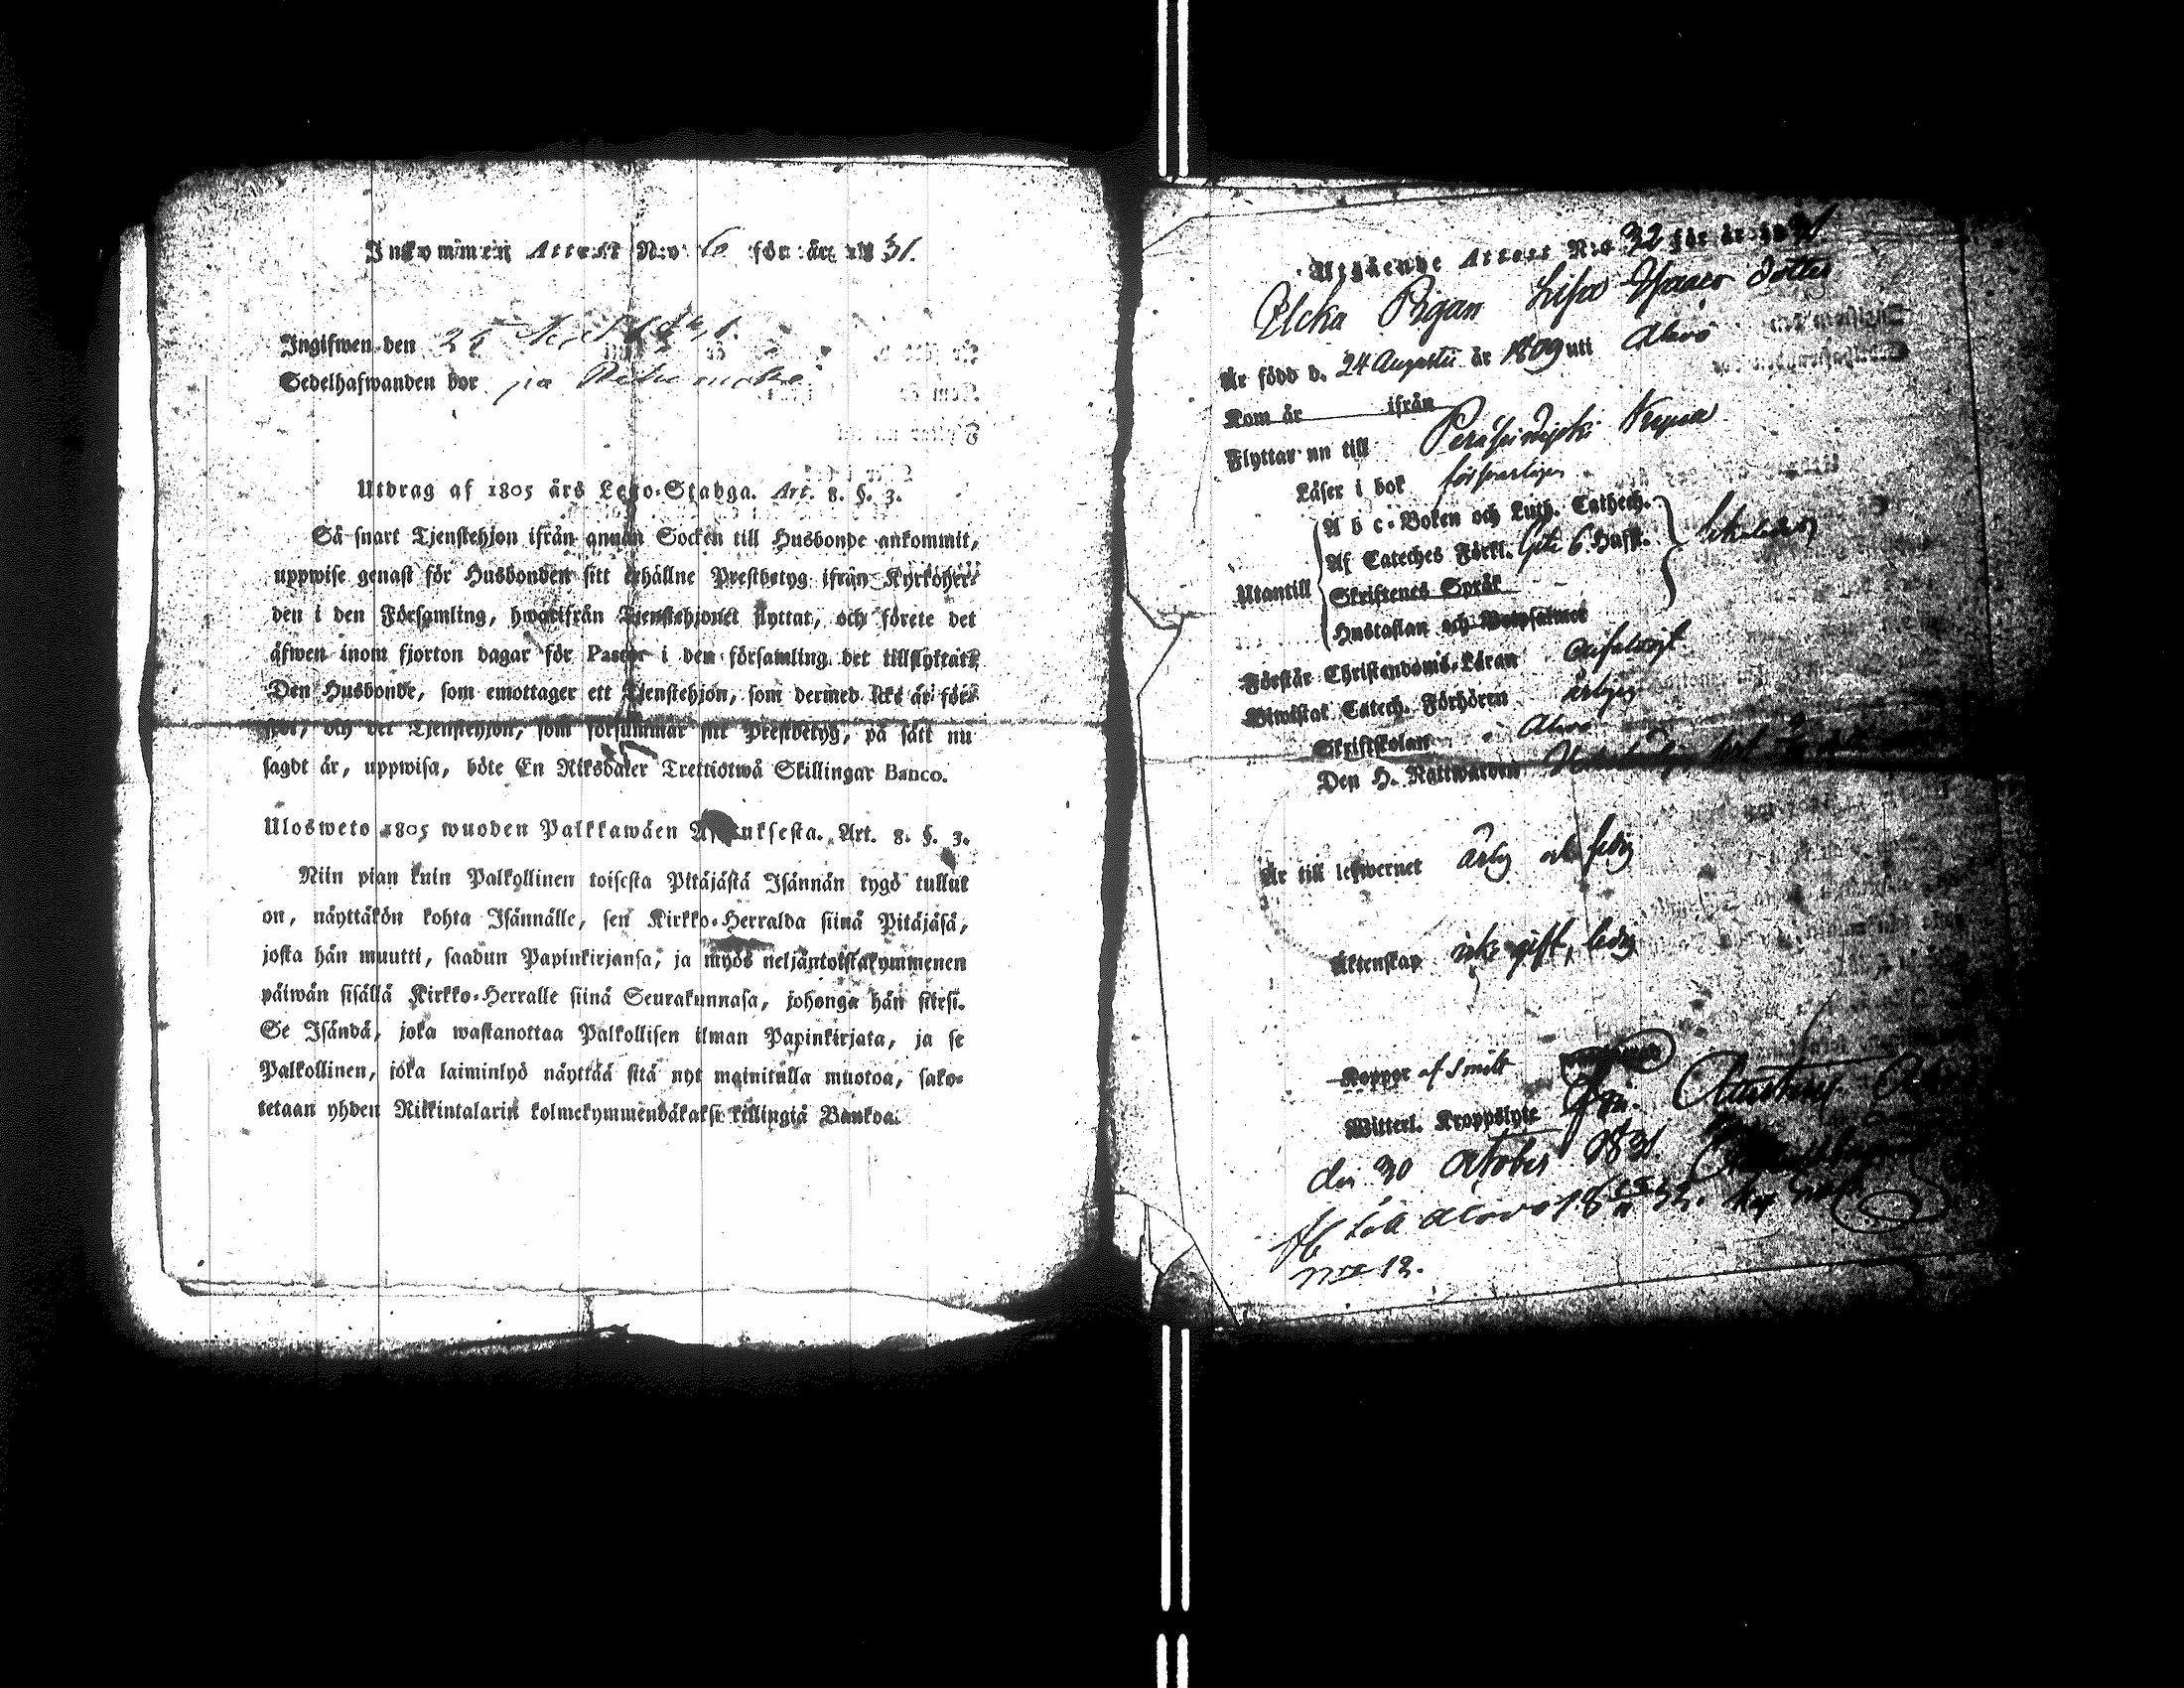 Inkommen Attest N:o 6 för år 1831.
Ingifwen den 25
Sedelhafwanden bor på
Utdrag af 1805 års Lego-Stadga. Art. 8. §. 3.
Så snart Tjenstehjon ifrån annan Socken till Husbonde ankommit,
uppwise genast för Husbonden sitt erhållne Prestbetyg ifrån Kyrkoher-
den i den Församling, hwarifrån Tjenstehjonet flyttat, och förete det
äfwen inom fjorton dagar för Pastor i den församling det tillflyttat.
Den Husbonde, som emottager ett Tjenstehjon, som dermed icke är för-
sedt, och det Tjenstehjon, som försummar sitt Prestbetyg, på sätt nu
sagdt är, uppwisa, böte En Riksdaler Trettiotwå Skillingar Banco.
Ulosweto 1805 wuoden Palkkawäen Art. 8. §. 3.
Niin pian kuin Palkollinen toisesta Pitäjästä Isännän tygö tullut
on, näyttäkön kohta Isännälle, sen Kirkko-Herralda siinä Pitäjäsä,
josta hän muutti, saadun Papinkirjansa, ja myös neljäntoistakymmenen
päiwän sisällä Kirkko-Herralle siinä Seurakunnasa, johonga hän siirsi.
Se Isändä, joka wastanottaa Palkollisen ilman Papinkirjata, ja se
Palkollinen, joka laiminlyö näyttää sitä nyt mainitulla muotoa, sako-
tetaan yhden Riikintalarin kolmekymmendäkaksi killingiä Bankoa.
Utgående Attest N:o 32 för år 1831
Pigan Lisa Isaacs dotter
Är född d. 24 Augusti år 1809 uti Alavo
Kom år ifrån
Flyttar nu till
Läser i bok försvarligen
A b c-Boken och Luth. Cathech.
Af Cateches Förkl. 6 Hufst.
Utantill
Skriftenes Språk
Hustaflan och Botpsalmer
Förstår Christendoms-Läran enfaldigt
Biwistat Catech. Förhören årligen
Skriftskolan i Alavo
Den H. Nattwarden
Är till lefwernet ärlig och fedig
Äktenskap icke gift, ledig
Koppor af Smitt
Witterl. Kroppslyte
den 30 October 1831.
till Alavo
N:o 12.